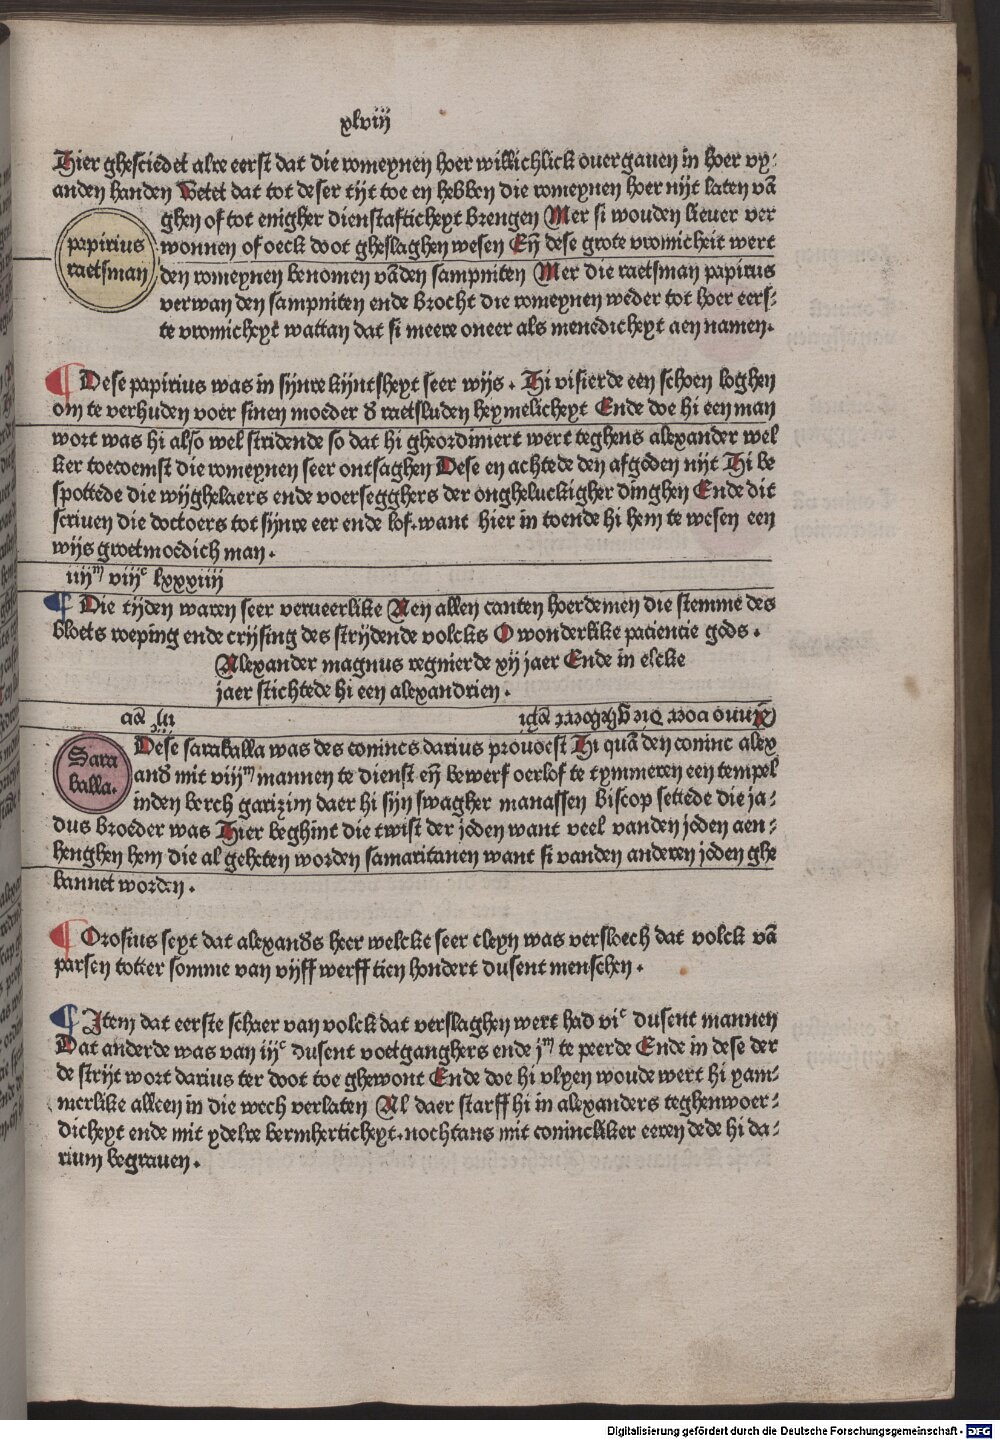 xlviij
Hier ghesciedet alre eerst dat die romeynen hoer willichlick ouergauen in hoer vy-
anden handen Wetet dat tot deser tijt toe en hebben die romeynen hoer nijt laten vā
ghen of tot enigher dienstafticheyt brengen Mer si wouden lieuer ver
papirius
raetsman
wonnen of oeck doot gheslaghen wesen Eñ dese grote vromicheit wert
den romeynen benomen vāden sampniten Mer die raetsman papirus
verwan den sampniten ende brocht die romeynen weder tot hoer eers-
te vromicheyt wattan dat si meere oneer als menedicheyt aen namen.
¶ Dese papirius was in sijnre kijntsheyt seer wijs. Hi visierde een schoen loghen
om te verhuden voer sinen moeder ð raetsluden heymelicheyt Ende doe hi een man
wort was hi also wel stridende so dat hi gheordiniert wert teghens alexander wel
ker toecoemst die romeynen seer ontsaghen Dese en achtede den afgoden nijt Hi be
spottede die wijghelaers ende voersegghers der ongheluckigher dinghen Ende dit
scriuen die doctoers tot sijnre eer ende lof. want hier in toende hi hem te wesen een
wijs groetmoedich man.
iiijᵐ viijᶜ lxxxiiij
¶ Die tijden waren seer verueerlike Aen allen canten hoerdemen die stemme des
bloets roeping ende crijsing des strijdende volcks O wonderlike paciencie gods.
Alexander magnus regnierde xij jaer Ende in elcke
jaer stichtede hi een alexandrien.
Anno voer die gheboert cristi
Sara
balla.
Dese saraballa was des conincs darius prouoest Hi quā den coninc alex
anð mit viijᵐ mannen te dienst eñ bewerf oerlof te tymmeren een tempel
inden berch garizim daer hi sijn swagher manassen biscop settede die ja-
dus broeder was Hier beghint die twist der joden want veel vanden joden aen-
henghen hem die al geheten worden samaritanen want si vanden anderen joden ghe
bannet worden.
¶ Orosius seyt dat alexanðs heer welcke seer cleyn was versloech dat volck vā
parsen totter somme van vijff werff tien hondert dusent menschen.
¶ Item dat eerste schaer van volck dat verslaghen wert had viᶜ dusent mannen
Dat anderde was van iijᶜ dusent voetganghers ende jᵐ te peerde Ende in dese der
de strijt wort darius ter doot toe ghewont Ende doe hi vlyen woude wert hi yam-
merlike alleen in die wech verlaten Al daer starff hi in alexanders teghenwoer-
dicheyt ende mit ydelre bermherticheyt. nochtans mit coninckliker eeren dede hi da-
rium begrauen.
Digitalisierung gefördert durch die Deutsche Forschungsgemeinschaft - DFG